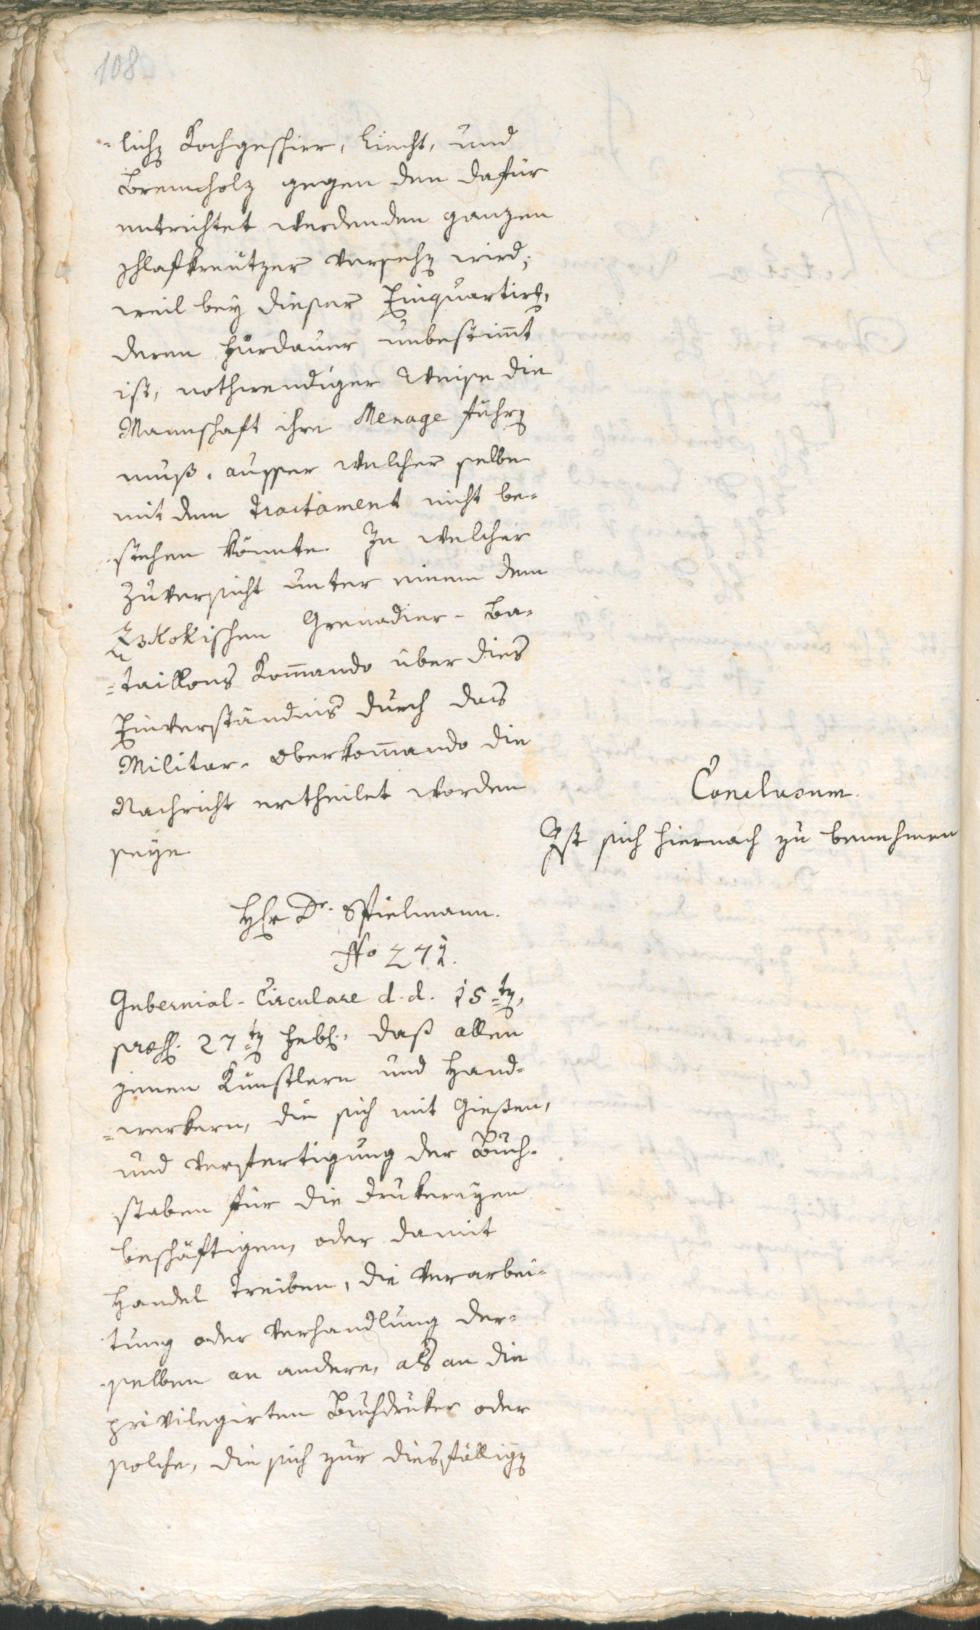 108
-lichen Kochgeschirr, Liecht, und
Brennholz gegen den dafür
entrichtet werdenden ganzen
Schlafkreutzer versehen wird;
weil bey dieser Einquartirg,
deren Fürdauer unbestim̄t
ist, nothwendiger Weise die
Mannschaft ihre Menage führen
muß, ausser welcher selbe
mit dem Tractament nicht be-
stehen könnte. In welcher
Zuversicht unter einem dem
Grenadier-Ba-
=taillons Kom̄ando über dies
Einverständnis durch das
Militar-Oberkom̄ando die
Nachricht ertheilet worden
seye
Conclusum.
Ist sich hiernach zu benehmen
Hr Dr. Spielmann.
No 271.
Gubernial-Circulare d.d. 15ten,
praes. 27ten Febr. daß allen
jenen Künstlern und Hand-
=werkern, die sich mit Gießen,
und Verfertigung der Buch-
staben für die Drukereyen
beschäftigen, oder damit
Handel treiben, die Verarbei-
tung oder Verhandlung der-
selben an andere, als an die
privilegirten Buchdruker oder
solche, die sich zur diesfälligen